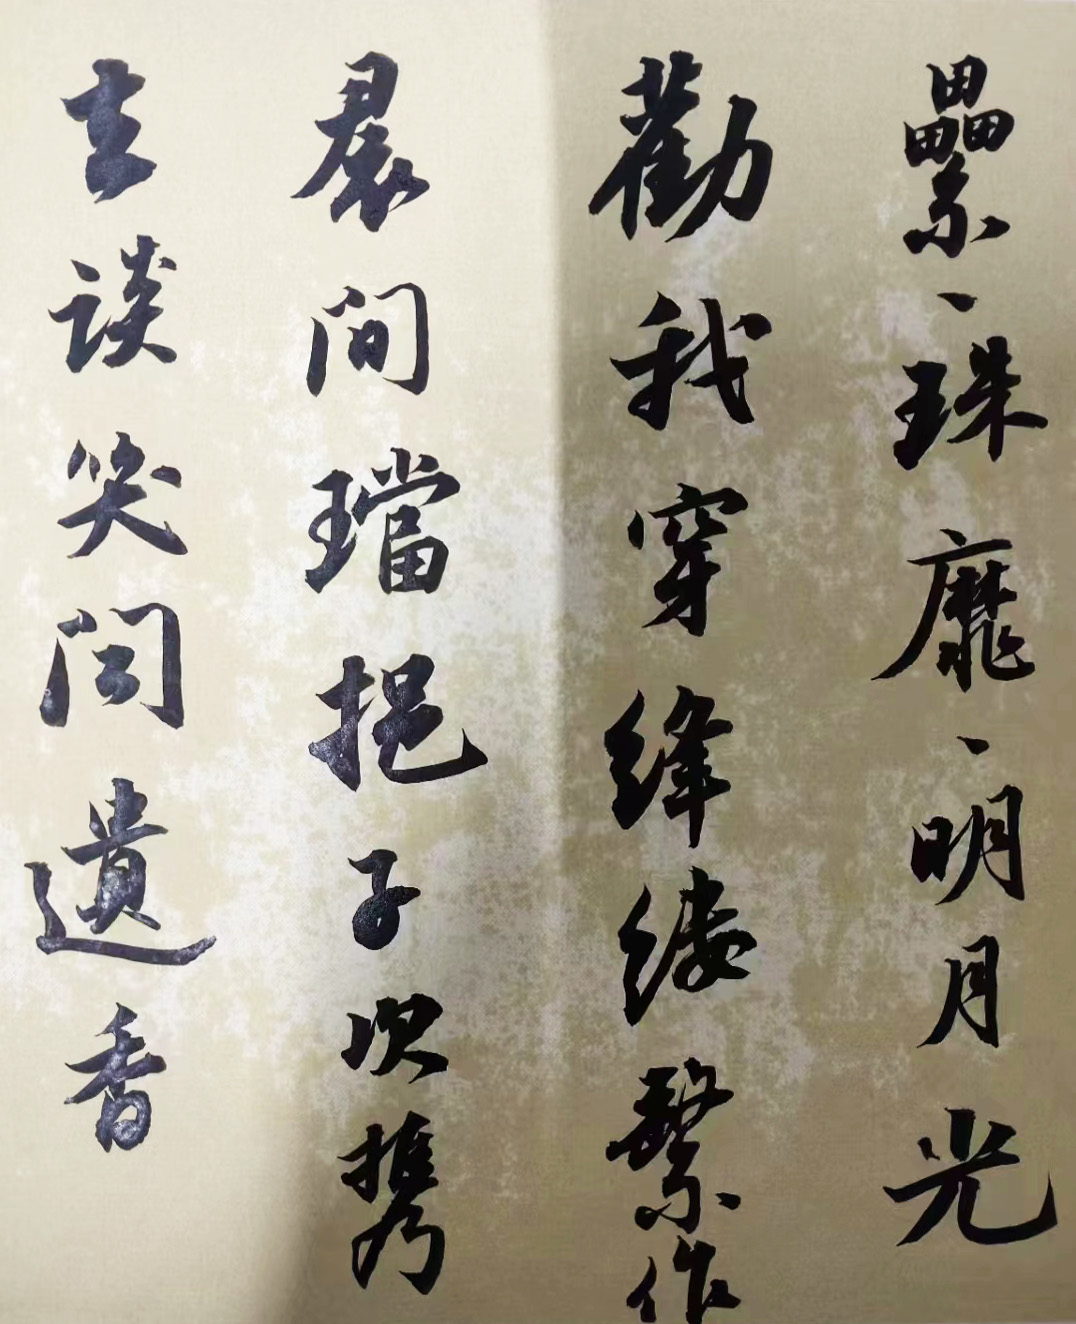 纍、珠靡、明月光
勸我穿絳縷繫作
裠間璫挹子以携
去談笑聞遺香